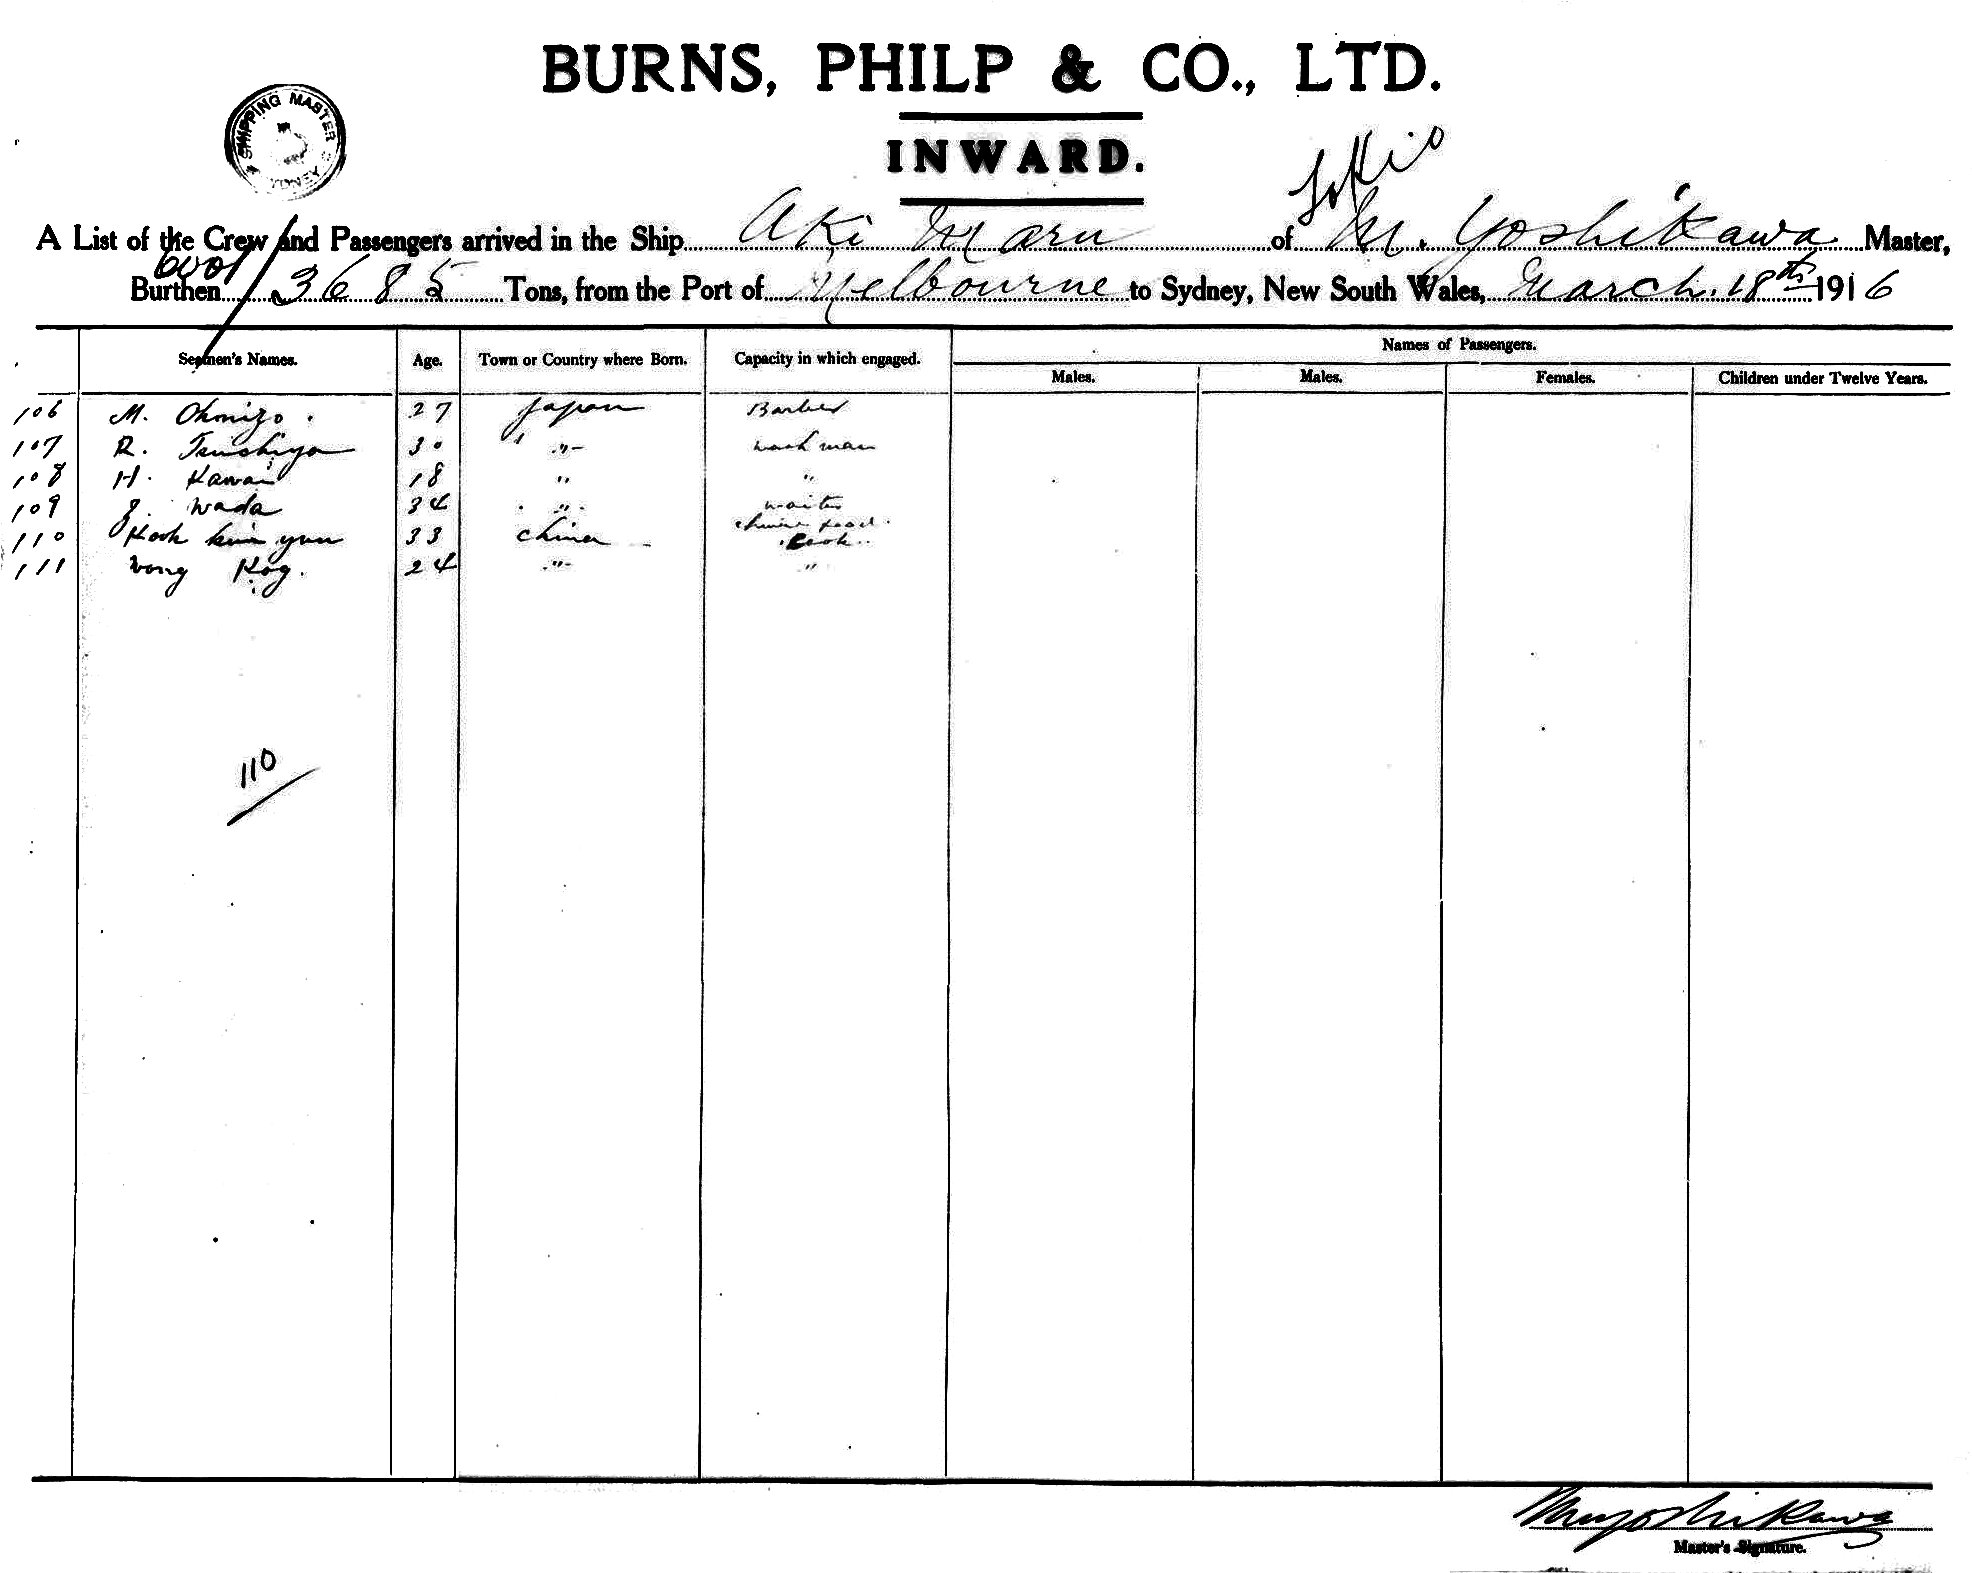 BURNS, PHILP & CO., LTD.
INWARD.
SHIPPING MASTER SYDNEY
Tokio
A List of the Crew and Passengers arrived in the Ship Aki Maru of M. Yoshikawa Master,
6001
Burthen 3685 Tons, from the Port of Melbourne to Sydney, New South Wales, March. 18th 1916
Names of Passengers.
Seamen's Names. Age. Town or Country where Born. Capacity in which engaged. Males. Males. Females. Children under Twelve Years.
106 M. 27 Japan Barber
107 R. Tsuchiya 30 " wash man
108 H. Kawai 18 " "
109 Wada 34 " waiter
110 Kook yun 33 China Cook
111 Wong 24 " "
110
M Yoshikawa
Master's Signature.